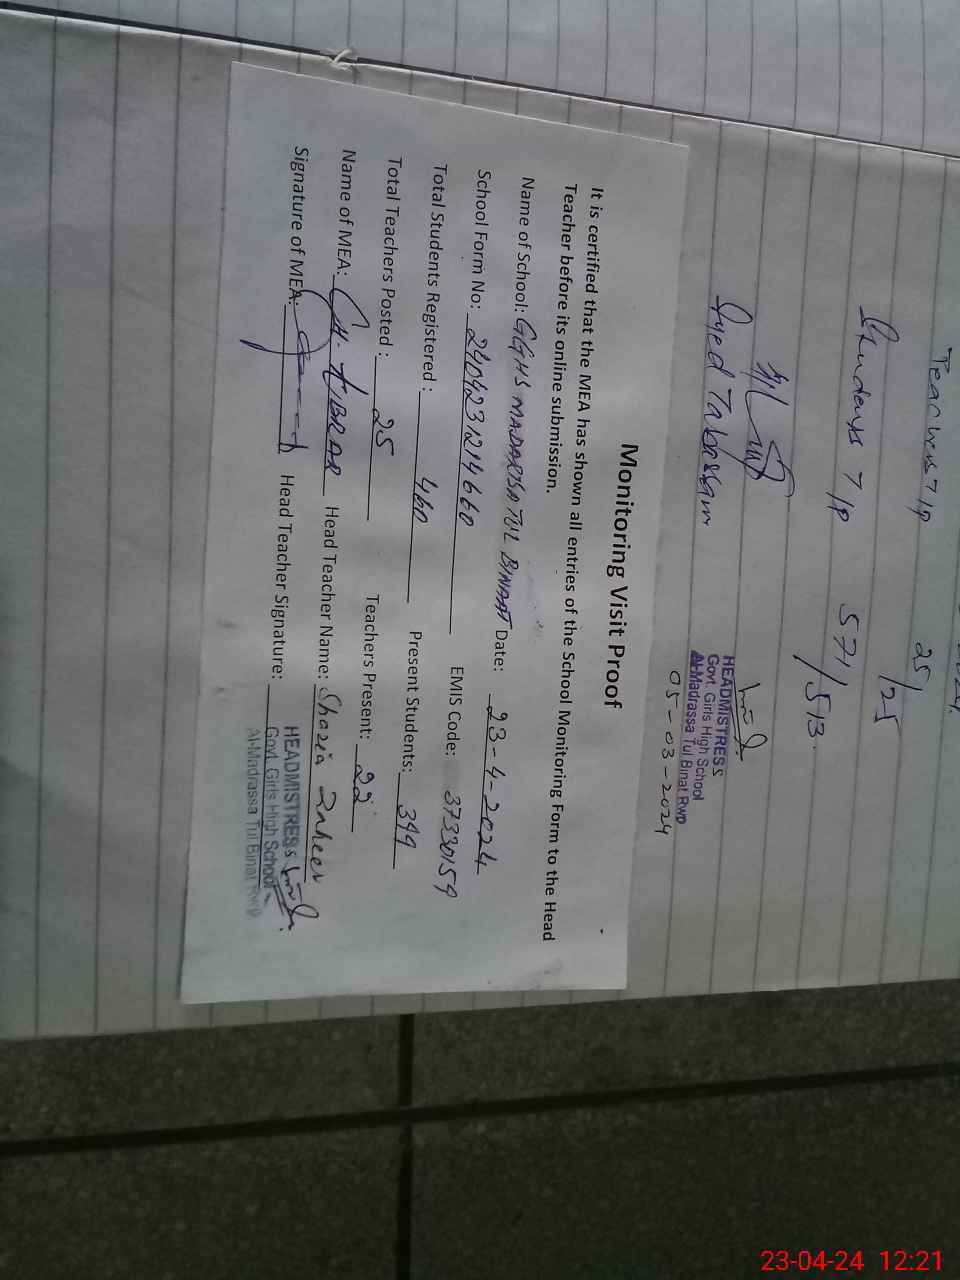 Teachers T/P 25/25
Students T/P 571/513.
Syed Tabassam
HEADMISTRESS
Govt. Girls High School
Al-Madrassa Tul Binat Rwp
05-03-2024
Monitoring Visit Proof
It is certified that the MEA has shown all entries of the School Monitoring Form to the Head
Teacher before its online submission.
Name of School: GGHS MADARSA TUL BINAAT Date: 23-4-2024
School Form No: 2404231214660 EMIS Code: 37330159
Total Students Registered: 460 Present Students: 399
Total Teachers Posted: 25 Teachers Present: 22
Name of MEA: CH. AIBRAR Head Teacher Name: Shazia Zaheer
Signature of MEA: Head Teacher Signature:
HEADMISTRESS
Govt. Girls High School
Al-Madrassa Tul Binat Rwp
23-04-24 12:21